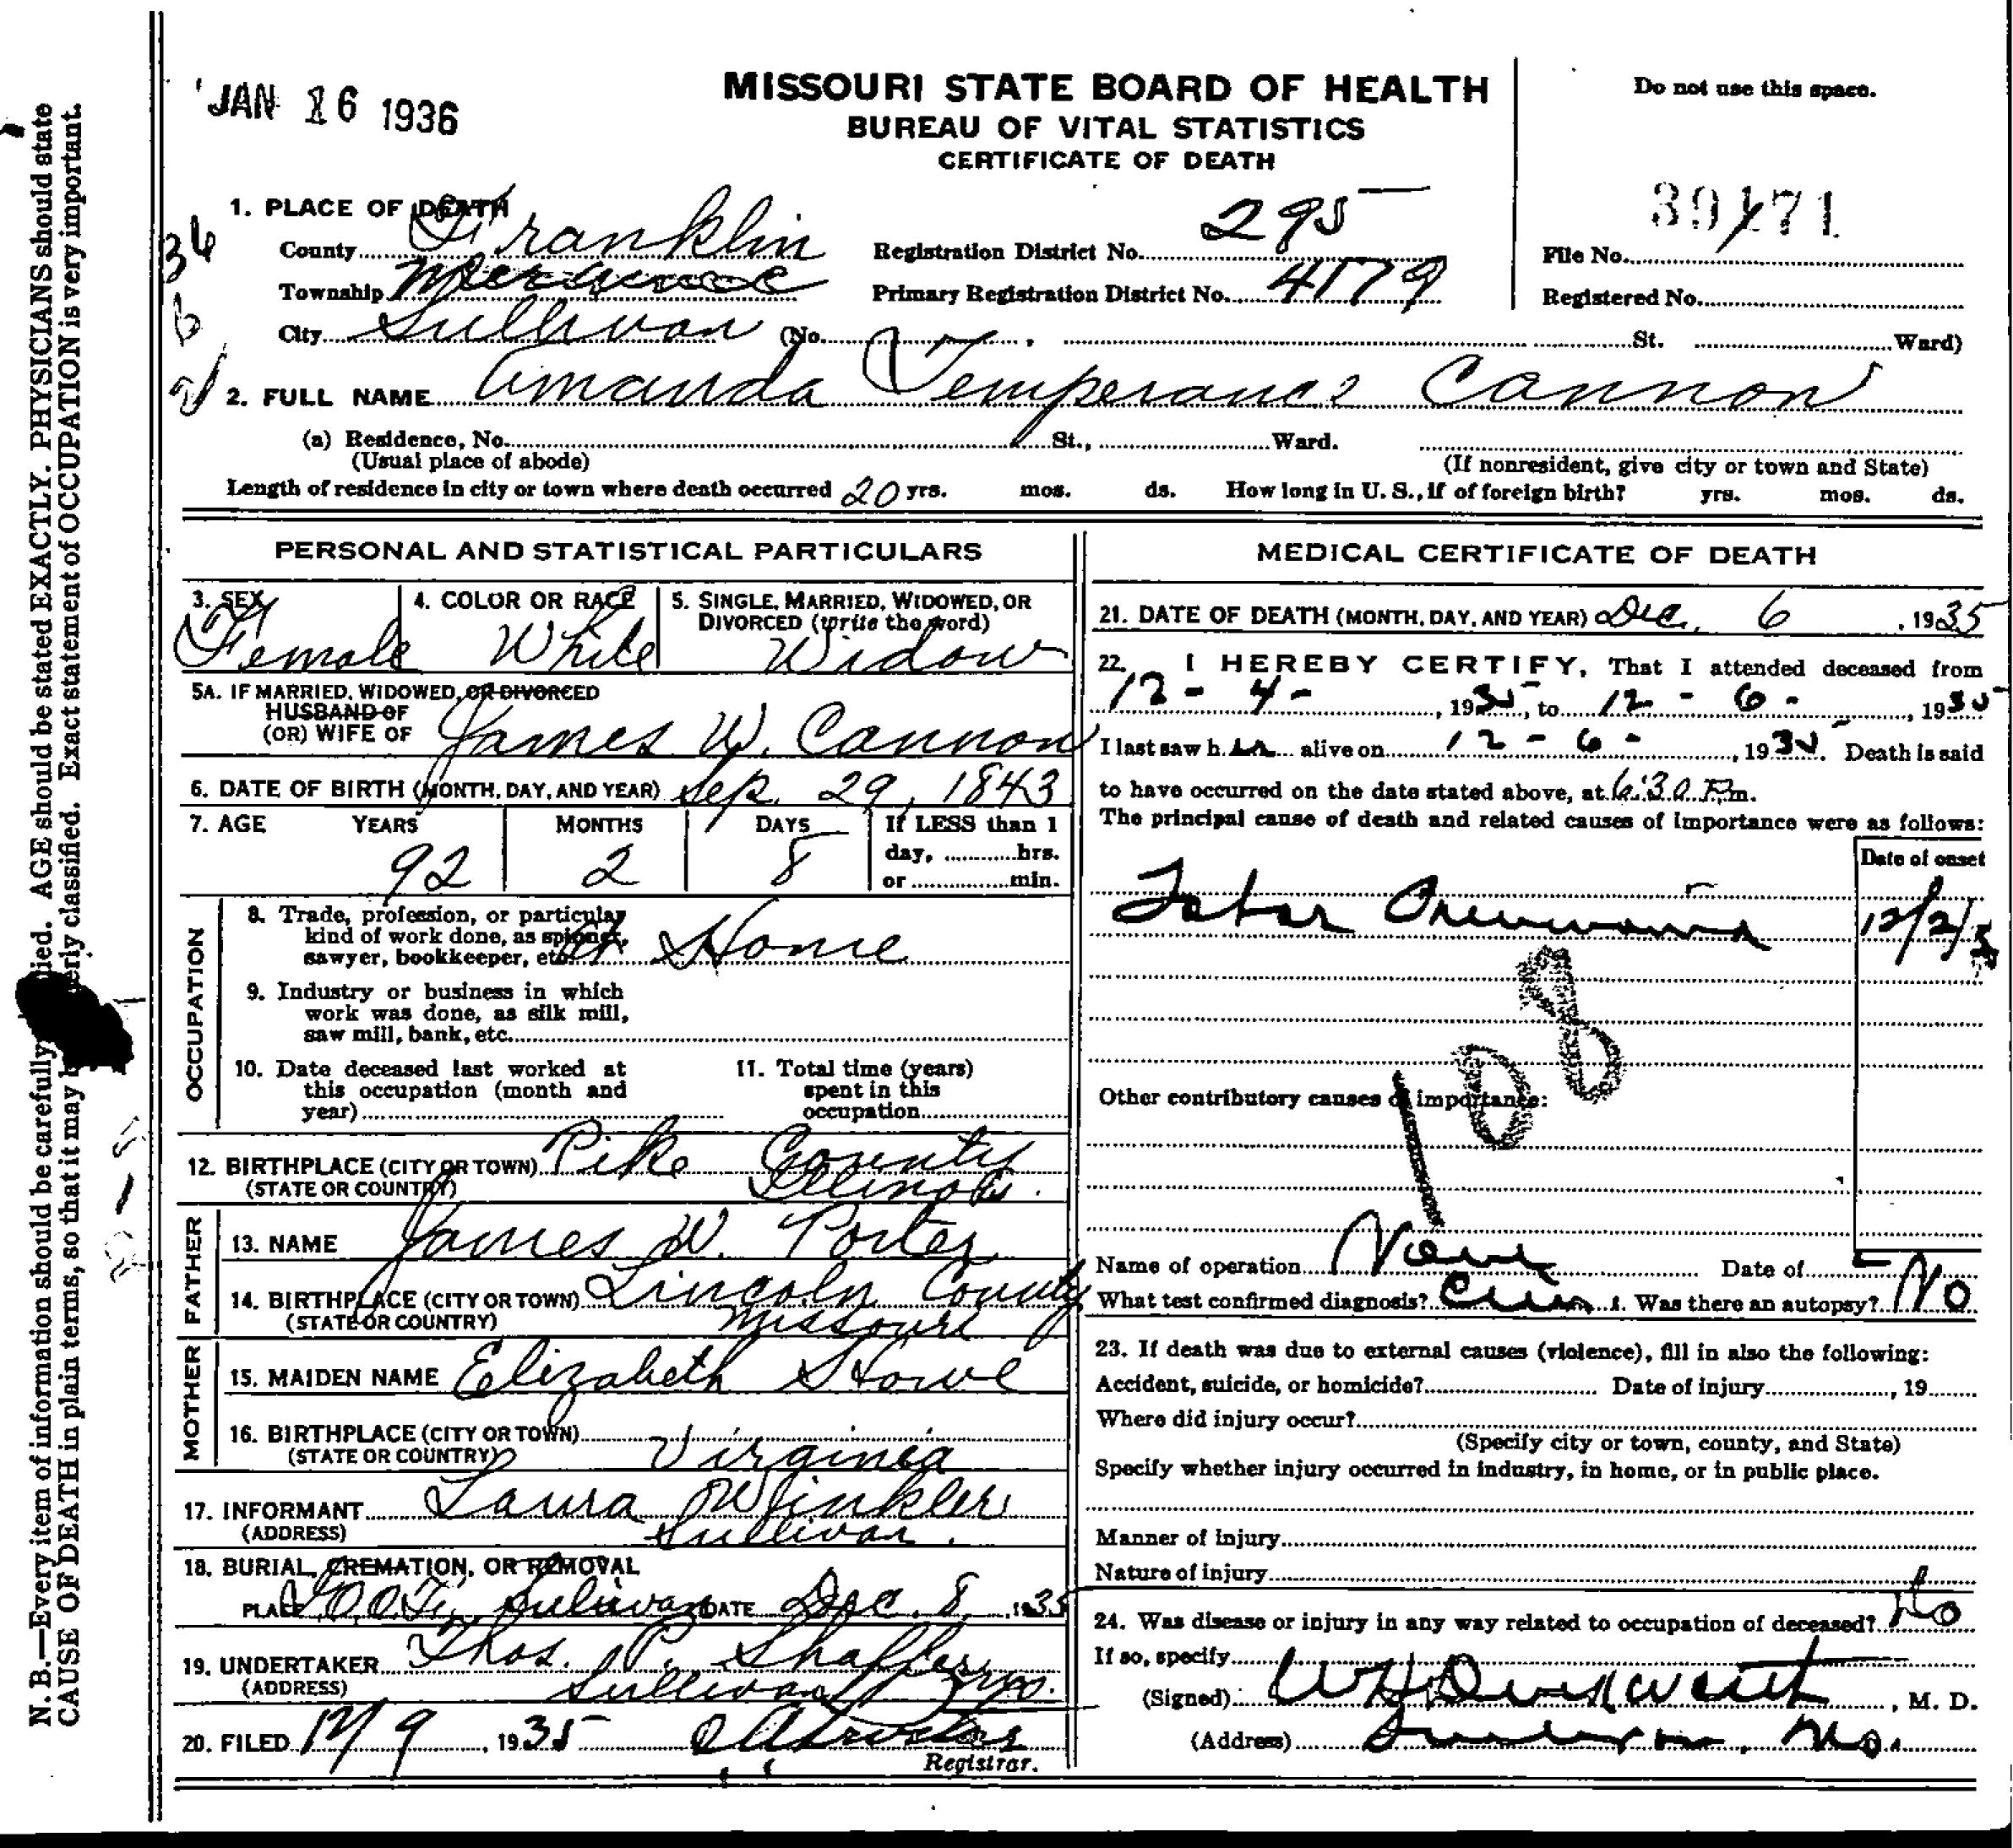 JAN 16 1936
MISSOURI STATE BOARD OF HEALTH
BUREAU OF VITAL STATISTICS
CERTIFICATE OF DEATH
Do not use this space.
1. PLACE OF DEATH
County Franklin Registration District No. 295
File No. 39171
Township Primary Registration District No. 4179
Registered No.
City Sullivan (No. , St. Ward)
2. FULL NAME Amanda Temperance Cannon
(a) Residence, No. St., Ward.
(Usual place of abode) (If nonresident, give city or town and State)
Length of residence in city or town where death occurred 20 yrs. mos. ds. How long in U. S., if of foreign birth? yrs. mos. ds.
PERSONAL AND STATISTICAL PARTICULARS
3. SEX 4. COLOR OR RACE 5. SINGLE, MARRIED, WIDOWED, OR
DIVORCED (write the word)
Female White Widow
5A. IF MARRIED, WIDOWED, OR DIVORCED
HUSBAND OF
(OR) WIFE OF James W. Cannon
6. DATE OF BIRTH (MONTH, DAY, AND YEAR) Sep. 29, 1843
7. AGE YEARS MONTHS DAYS If LESS than 1
day, hrs.
or min.
92 2 8
OCCUPATION
8. Trade, profession, or particular
kind of work done, as spinner,
sawyer, bookkeeper, etc. At Home
9. Industry or business in which
work was done, as silk mill,
saw mill, bank, etc.
10. Date deceased last worked at
this occupation (month and
year)
11. Total time (years)
spent in this
occupation
12. BIRTHPLACE (CITY OR TOWN) Pike County
(STATE OR COUNTRY) Illinois.
FATHER
13. NAME James W. Porter
14. BIRTHPLACE (CITY OR TOWN) Lincoln County
(STATE OR COUNTRY) Missouri
MOTHER
15. MAIDEN NAME Elizabeth Howe
16. BIRTHPLACE (CITY OR TOWN)
(STATE OR COUNTRY) Virginia
17. INFORMANT Laura Winkler
(ADDRESS) Sullivan.
18. BURIAL, CREMATION, OR REMOVAL
PLACE I.O.O.F. Sullivan DATE Dec. 8, 1935
19. UNDERTAKER Thos. P. Shaffer
(ADDRESS) Sullivan, Mo.
20. FILED 12/9, 1935
Registrar.
MEDICAL CERTIFICATE OF DEATH
21. DATE OF DEATH (MONTH, DAY, AND YEAR) Dec. 6, 1935
22. I HEREBY CERTIFY, That I attended deceased from
12-4-, 1935, to 12-6-, 1935
I last saw h er alive on 12-6-, 1935. Death is said
to have occurred on the date stated above, at 6:30 P.m.
The principal cause of death and related causes of importance were as follows:
Date of onset
Lobar Pneumonia 12/2/35
108
Other contributory causes of importance:
Name of operation None Date of
What test confirmed diagnosis? Was there an autopsy? No
23. If death was due to external causes (violence), fill in also the following:
Accident, suicide, or homicide? Date of injury , 19
Where did injury occur?
(Specify city or town, county, and State)
Specify whether injury occurred in industry, in home, or in public place.
Manner of injury
Nature of injury
24. Was disease or injury in any way related to occupation of deceased? No
If so, specify
(Signed) , M. D.
(Address) Sullivan, Mo.
N. B.—Every item of information should be carefully AGE should be stated EXACTLY. PHYSICIANS should state
CAUSE OF DEATH in plain terms, so that it may classified. Exact statement of OCCUPATION is very important.